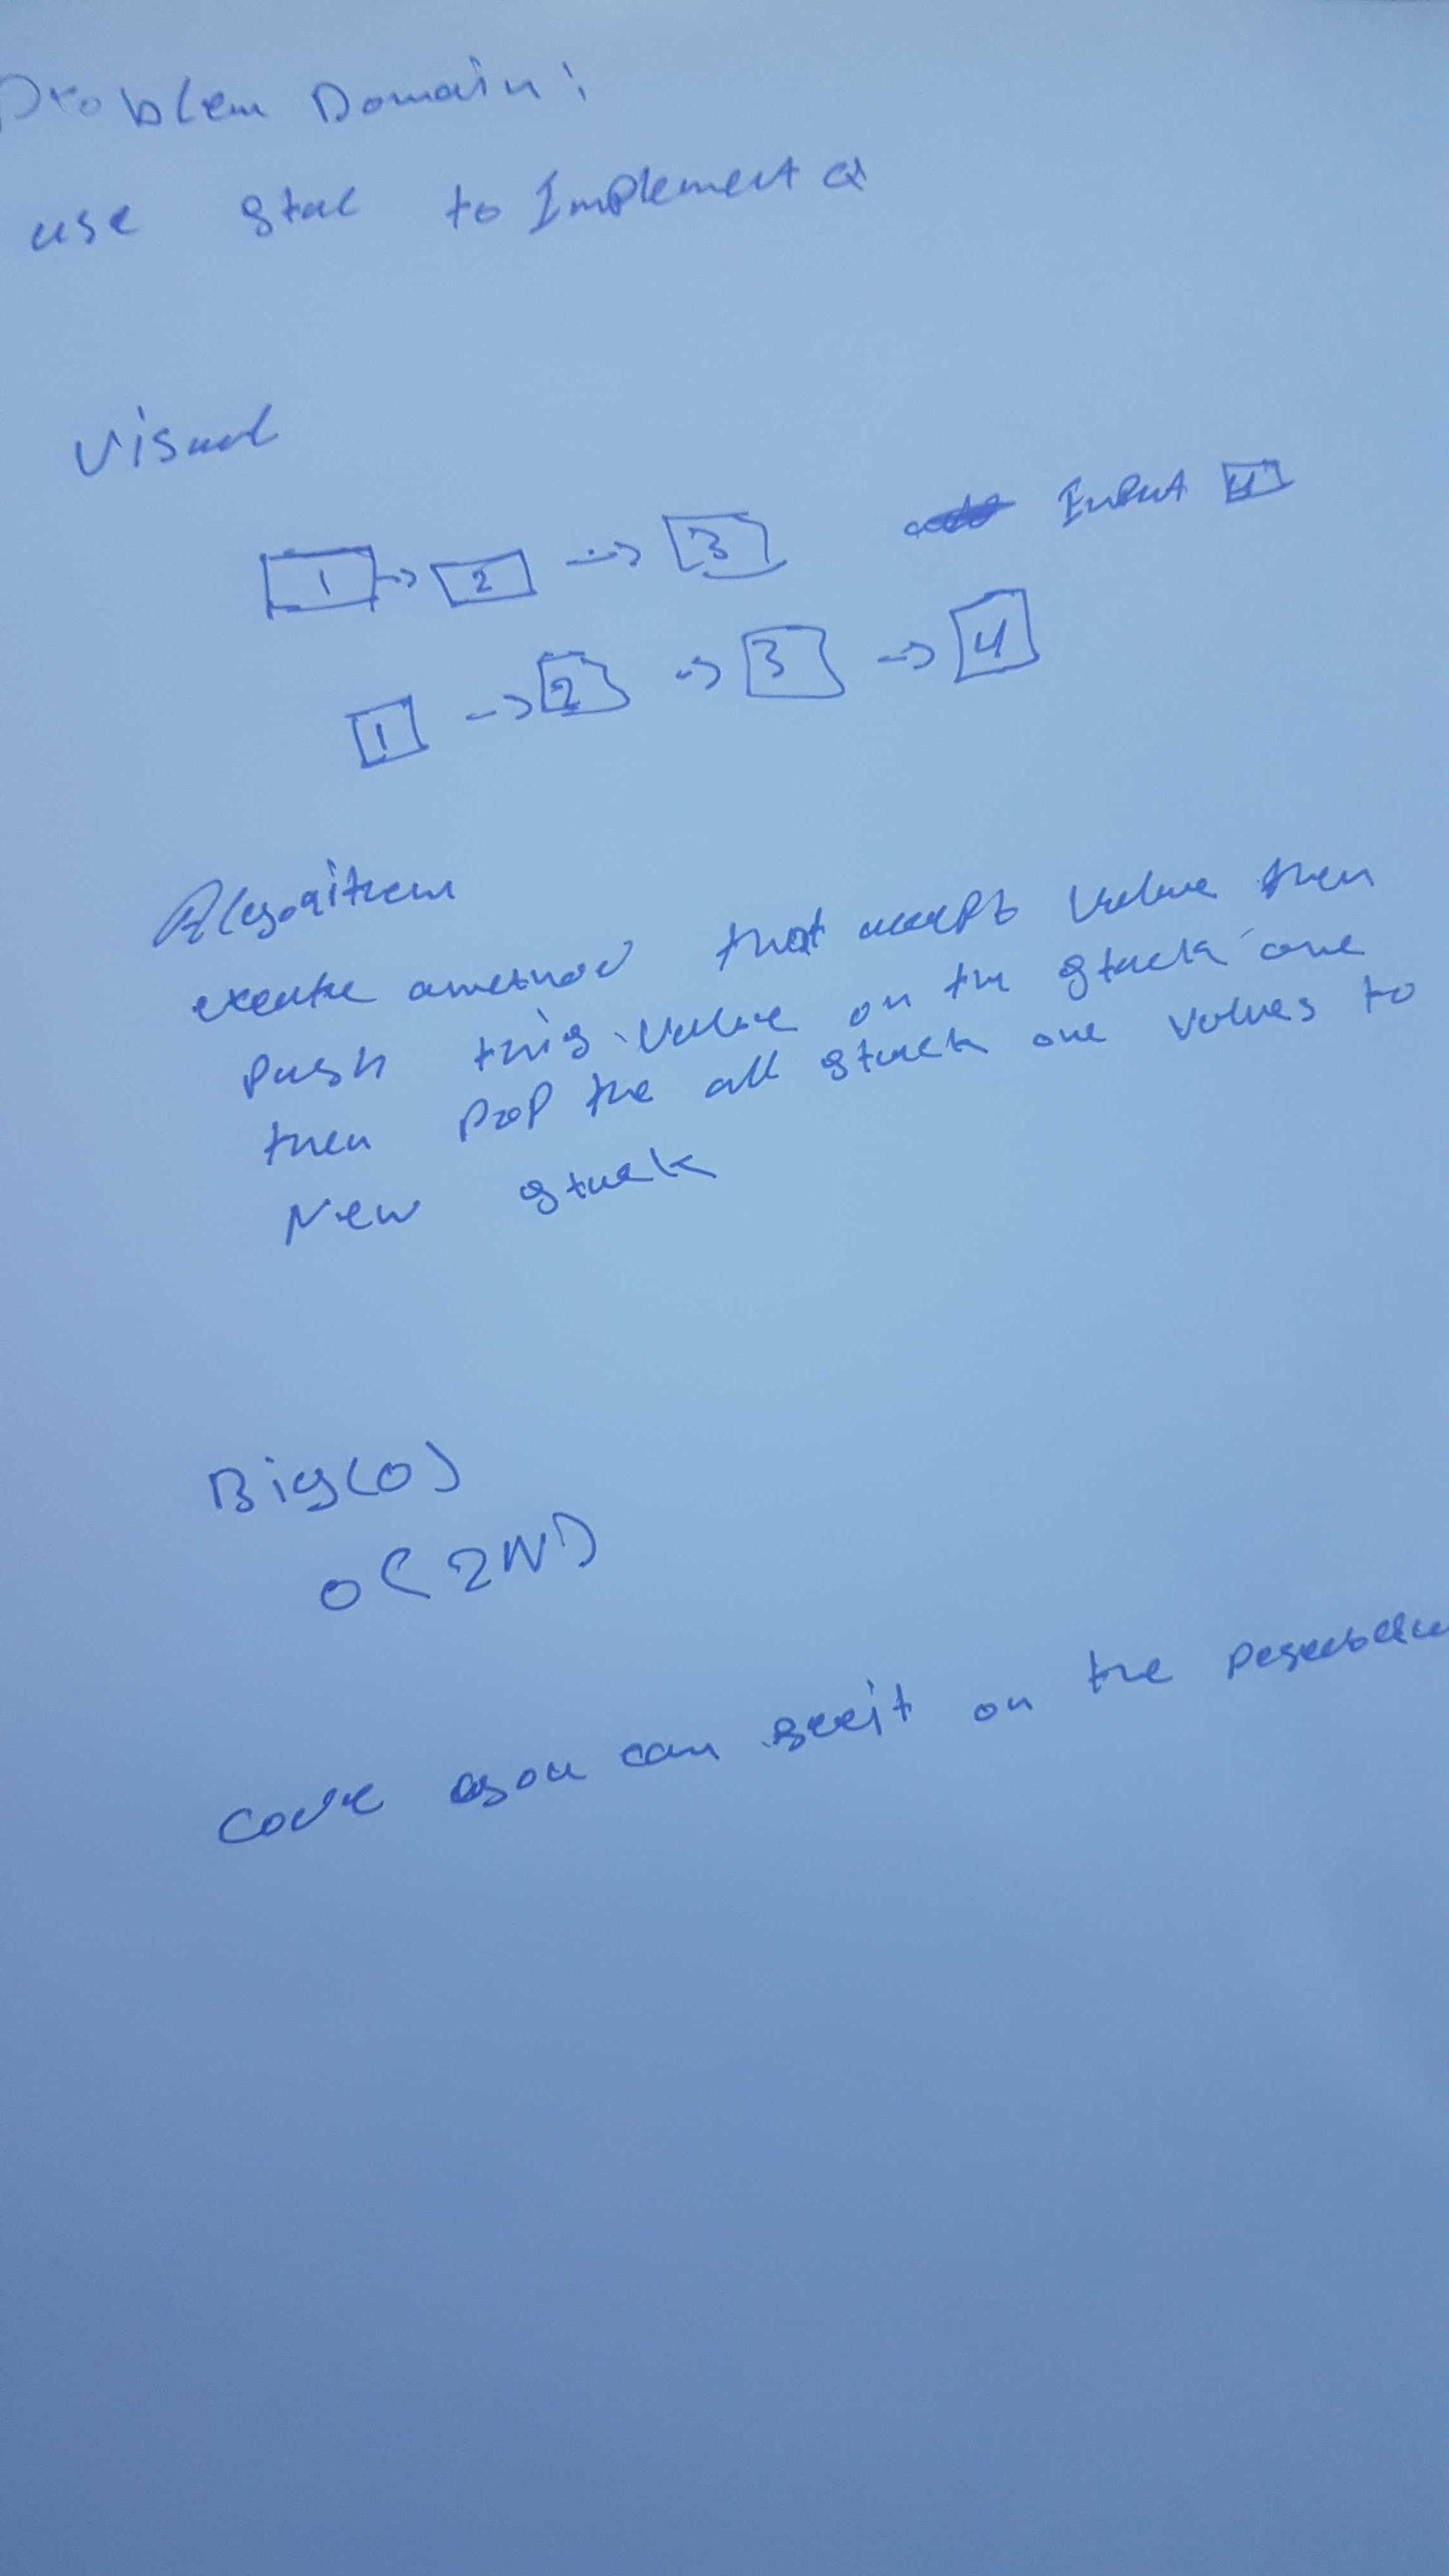 Problem Domain:
use stac to Implement Q
Visual
1 -> 2 -> 3 Input 4
1 -> 2 -> 3 -> 4
Algorithem
create a method that accept value then
push this value on the stack one
then pop the all stack one values to
New stack
Big(O)
O(2N)
Code you can see it on the